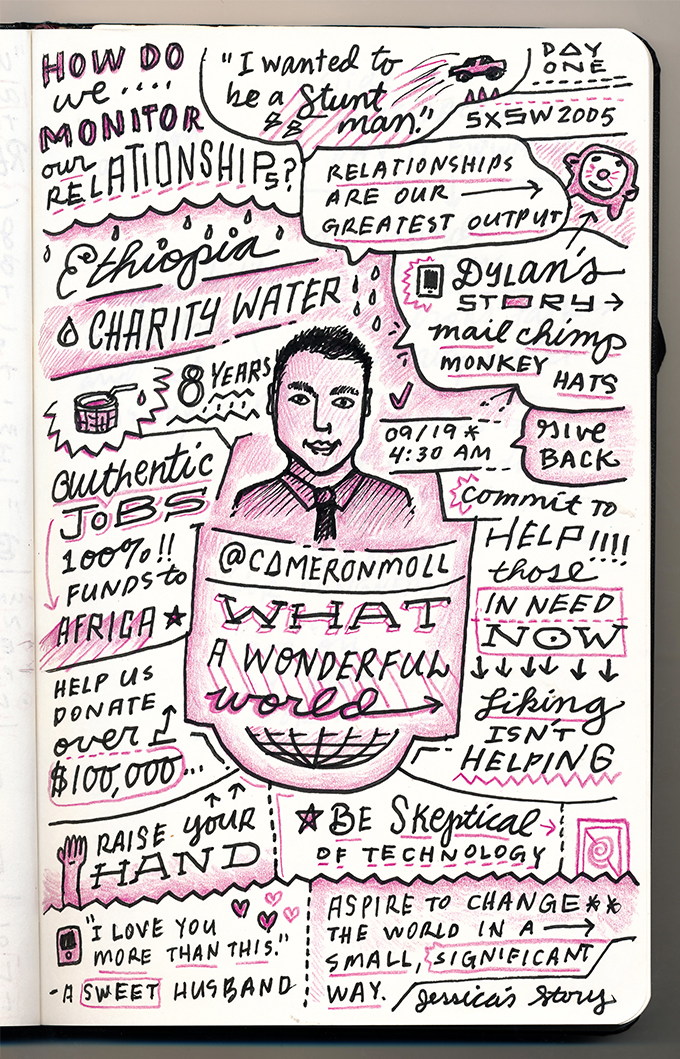 HOW DO
we....
MONITOR
our
RELATIONSHIPS?
"I wanted to
be a Stunt
man."
DAY
ONE
SXSW 2005
RELATIONSHIPS
ARE OUR
GREATEST OUTPUT
Ethiopia
CHARITY WATER
DYLAN'S
STORY
mail chimp
MONKEY
HATS
8 YEARS
09/19*
4:30 AM
Give
BACK
Authentic
JOBS
100%!!
FUNDS to
AFRICA
Commit TO
HELP!!!!
those
IN NEED
NOW
@CAMERONMOLL
WHAT
A WONDERFUL
world
HELP US
DONATE
over
$100,000...
Liking
ISN'T
HELPING
RAISE YOUR
HAND
BE Skeptical
OF TECHNOLOGY
"I LOVE YOU
MORE THAN THIS."
-A SWEET HUSBAND
ASPIRE TO CHANGE**
THE WORLD IN A
SMALL, SIGNIFICANT
WAY.
Jessica's Story